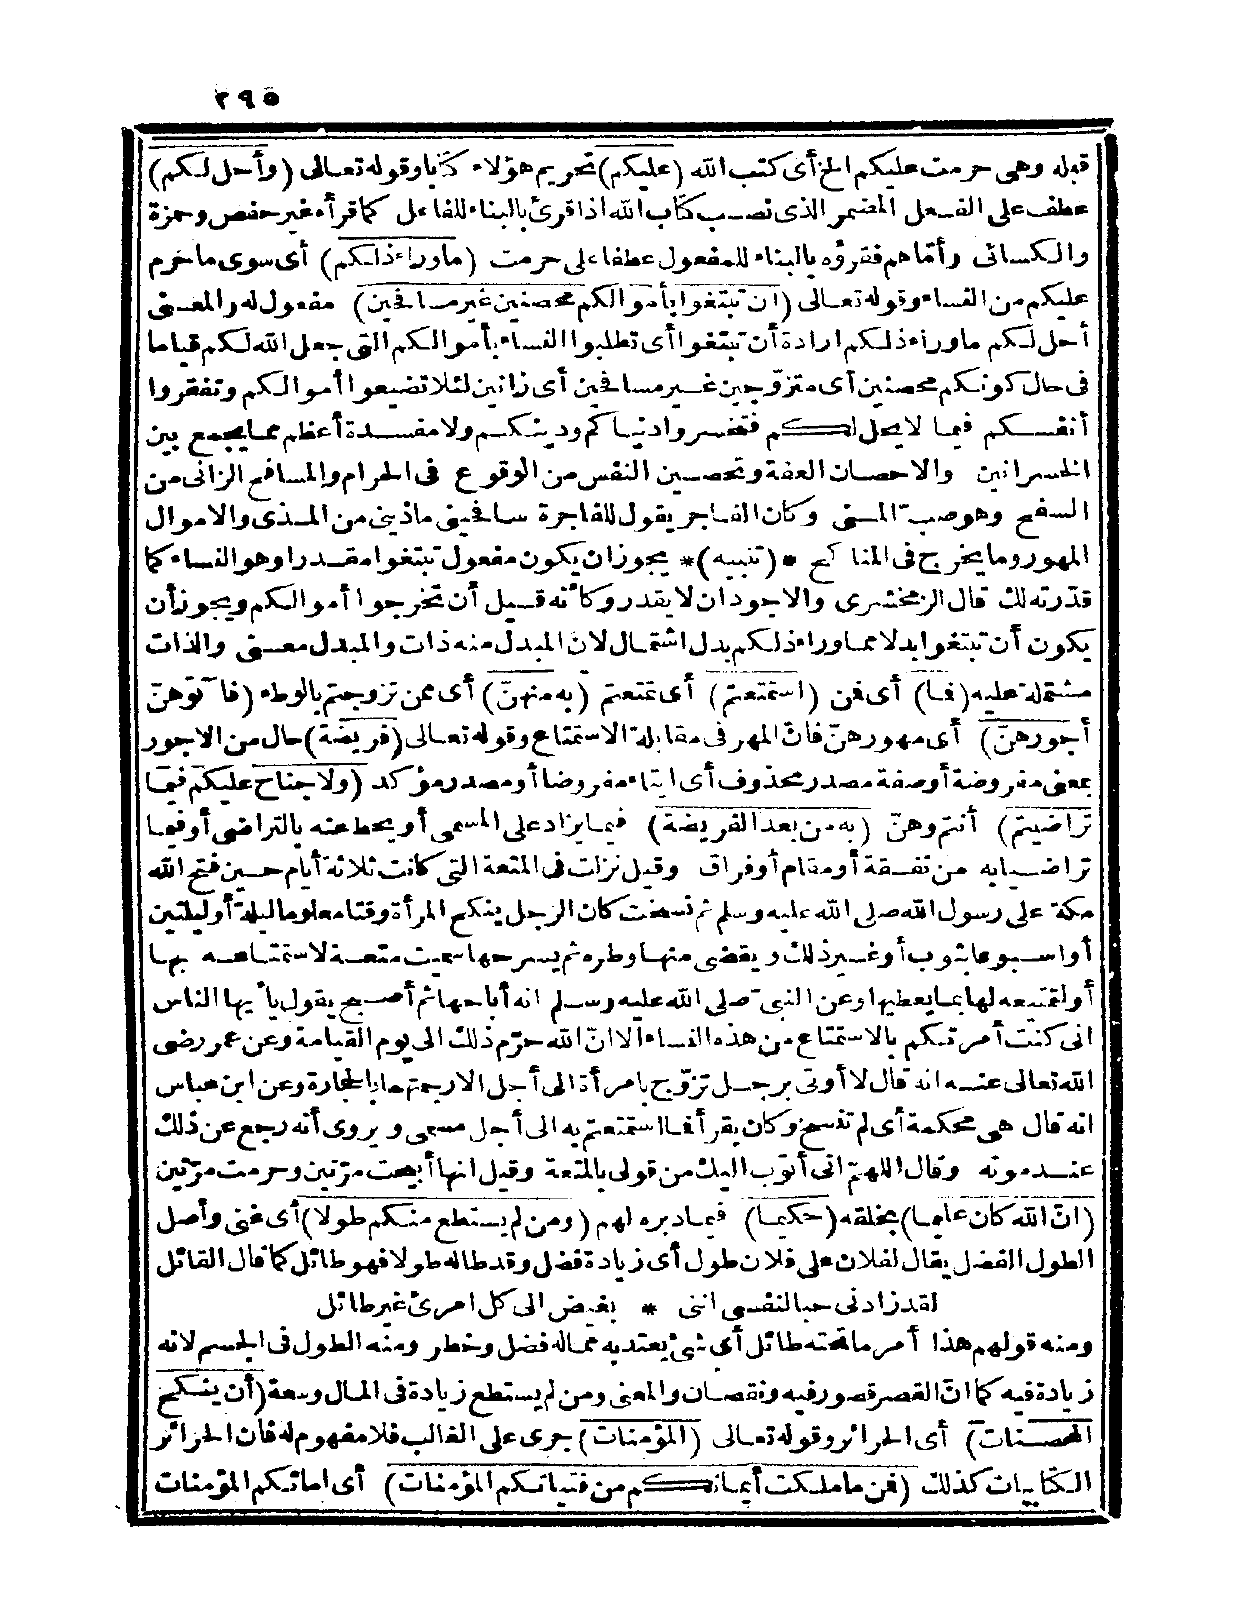 ٢٩٥
قبله وهى حرمت عليكم الخ أى كتب الله (عليكم) تحريم هؤلاء كتابا وقوله تعالى (وأحل لكم)
عطف على الفعل المضمر الذى نصب كتاب الله اذا قرئ بالبناء للفاعل كما قرأه غير حفص وحمزة
والكسائى وأما هم فقرؤه بالبناء للمفعول عطفا على حرمت (ماوراء ذلكم) أى سوى ما حرم
عليكم من النساء وقوله تعالى (ان تبتغوا بأموالكم محصنين غير مسافحين) مفعول له والمعنى
أحل لكم ماوراء ذلكم ارادة أن تبتغوا أى تطلبوا النساء بأموالكم التى جعل الله لكم قياما
فى حال كونكم محصنين أى متزوّجين غير مسافحين أى زانين لئلا تضيعوا أموالكم وتفقروا
أنفسكم فيما لا يحل لكم فتخسروا دنياكم ودينكم ولا مفسدة أعظم مما يجمع بين
الخسرانين والاحصان العفة وتحصين النفس من الوقوع فى الحرام والمسافح الزانى من
السفح وهو صب المنى وكان الفاجر يقول للفاجرة سافحينى ماذينى من المذى والاموال
المهور وما يخرج فى المناكح * (تنبيه) * يجوز ان يكون مفعول تبتغوا مقدرا وهو النساء كما
قدّرته لك قال الزمخشرى والاجود ان لا يقدر وكأنه قيل أن تخرجوا أموالكم ويجوز أن
يكون أن تبتغوا بدلا مما وراء ذلكم بدل اشتمال لان المبدل منه ذات والمبدل معنى والذات
مشتملة عليه (فما) أى فمن (استمتعتم) أى تمتعتم (به منهنّ) أى ممن تزوجتم بالوطء (فآتوهنّ
أجورهنّ) أى مهورهنّ فانّ المهر فى مقابلة الاستمتاع وقوله تعالى (فريضة) حال من الاجور
بمعنى مفروضة أو صفة مصدر محذوف أى ايتاء مفروضا أو مصدر مؤكد (ولا جناح عليكم فيما
تراضيتم) أنتم وهنّ (به من بعد الفريضة) فيما يزاد على المسمى أو يحط عنه بالتراضى أو فيما
تراضيا به من نفقة أو مقام أو فراق وقيل نزلت فى المتعة التى كانت ثلاثة أيام حين فتح الله
مكة على رسول الله صلى الله عليه وسلم ثم نسخت كان الرجل ينكح المرأة وقتا معلوما ليلة أو ليلتين
أو اسبوعا بثوب أو غير ذلك ويقضى منها وطره ثم يسرحها سميت متعة لاستمتاعه بها
أو لتمتيعه لها بما يعطيها وعن النبى صلى الله عليه وسلم انه أباحها ثم أصبح يقول يا أيها الناس
انى كنت أمرتكم بالاستمتاع من هذه النساء ألا انّ الله حرّم ذلك الى يوم القيامة وعن عمر رضى
الله تعالى عنه انه قال لا أوتى برجل تزوّج بامرأة الى أجل الا رجمتهما بالحجارة وعن ابن عباس
انه قال هى محكمة أى لم تنسخ وكان يقرأ فما استمتعتم به الى أجل مسمى ويروى أنه رجع عن ذلك
عند موته وقال اللهمّ انى أتوب اليك من قولى بالمتعة وقيل انها أبيحت مرّتين وحرمت مرّتين
(انّ الله كان عليما) بخلقه (حكيما) فيما دبره لهم (ومن لم يستطع منكم طولا) أى غنى وأصل
الطول الفضل يقال لفلان على فلان طول أى زيادة فضل وقد طاله طولا فهو طائل كما قال القائل
لقد زادنى حبا لنفسى اننى * بغيض الى كل امرئ غير طائل
ومنه قولهم هذا أمر ما تحته طائل أى شئ يعتد به مما له فضل وخطر ومنه الطول فى الجسم لانه
زيادة فيه كما انّ القصر قصور فيه ونقصان والمعنى ومن لم يستطع زيادة فى المال وسعة (أن ينكح
المحصنات) أى الحرائر وقوله تعالى (المؤمنات) جرى على الغالب فلا مفهوم له فان الحرائر
الكتابيات كذلك (فمن ما ملكت أيمانكم من فتياتكم المؤمنات) أى امائكم المؤمنات